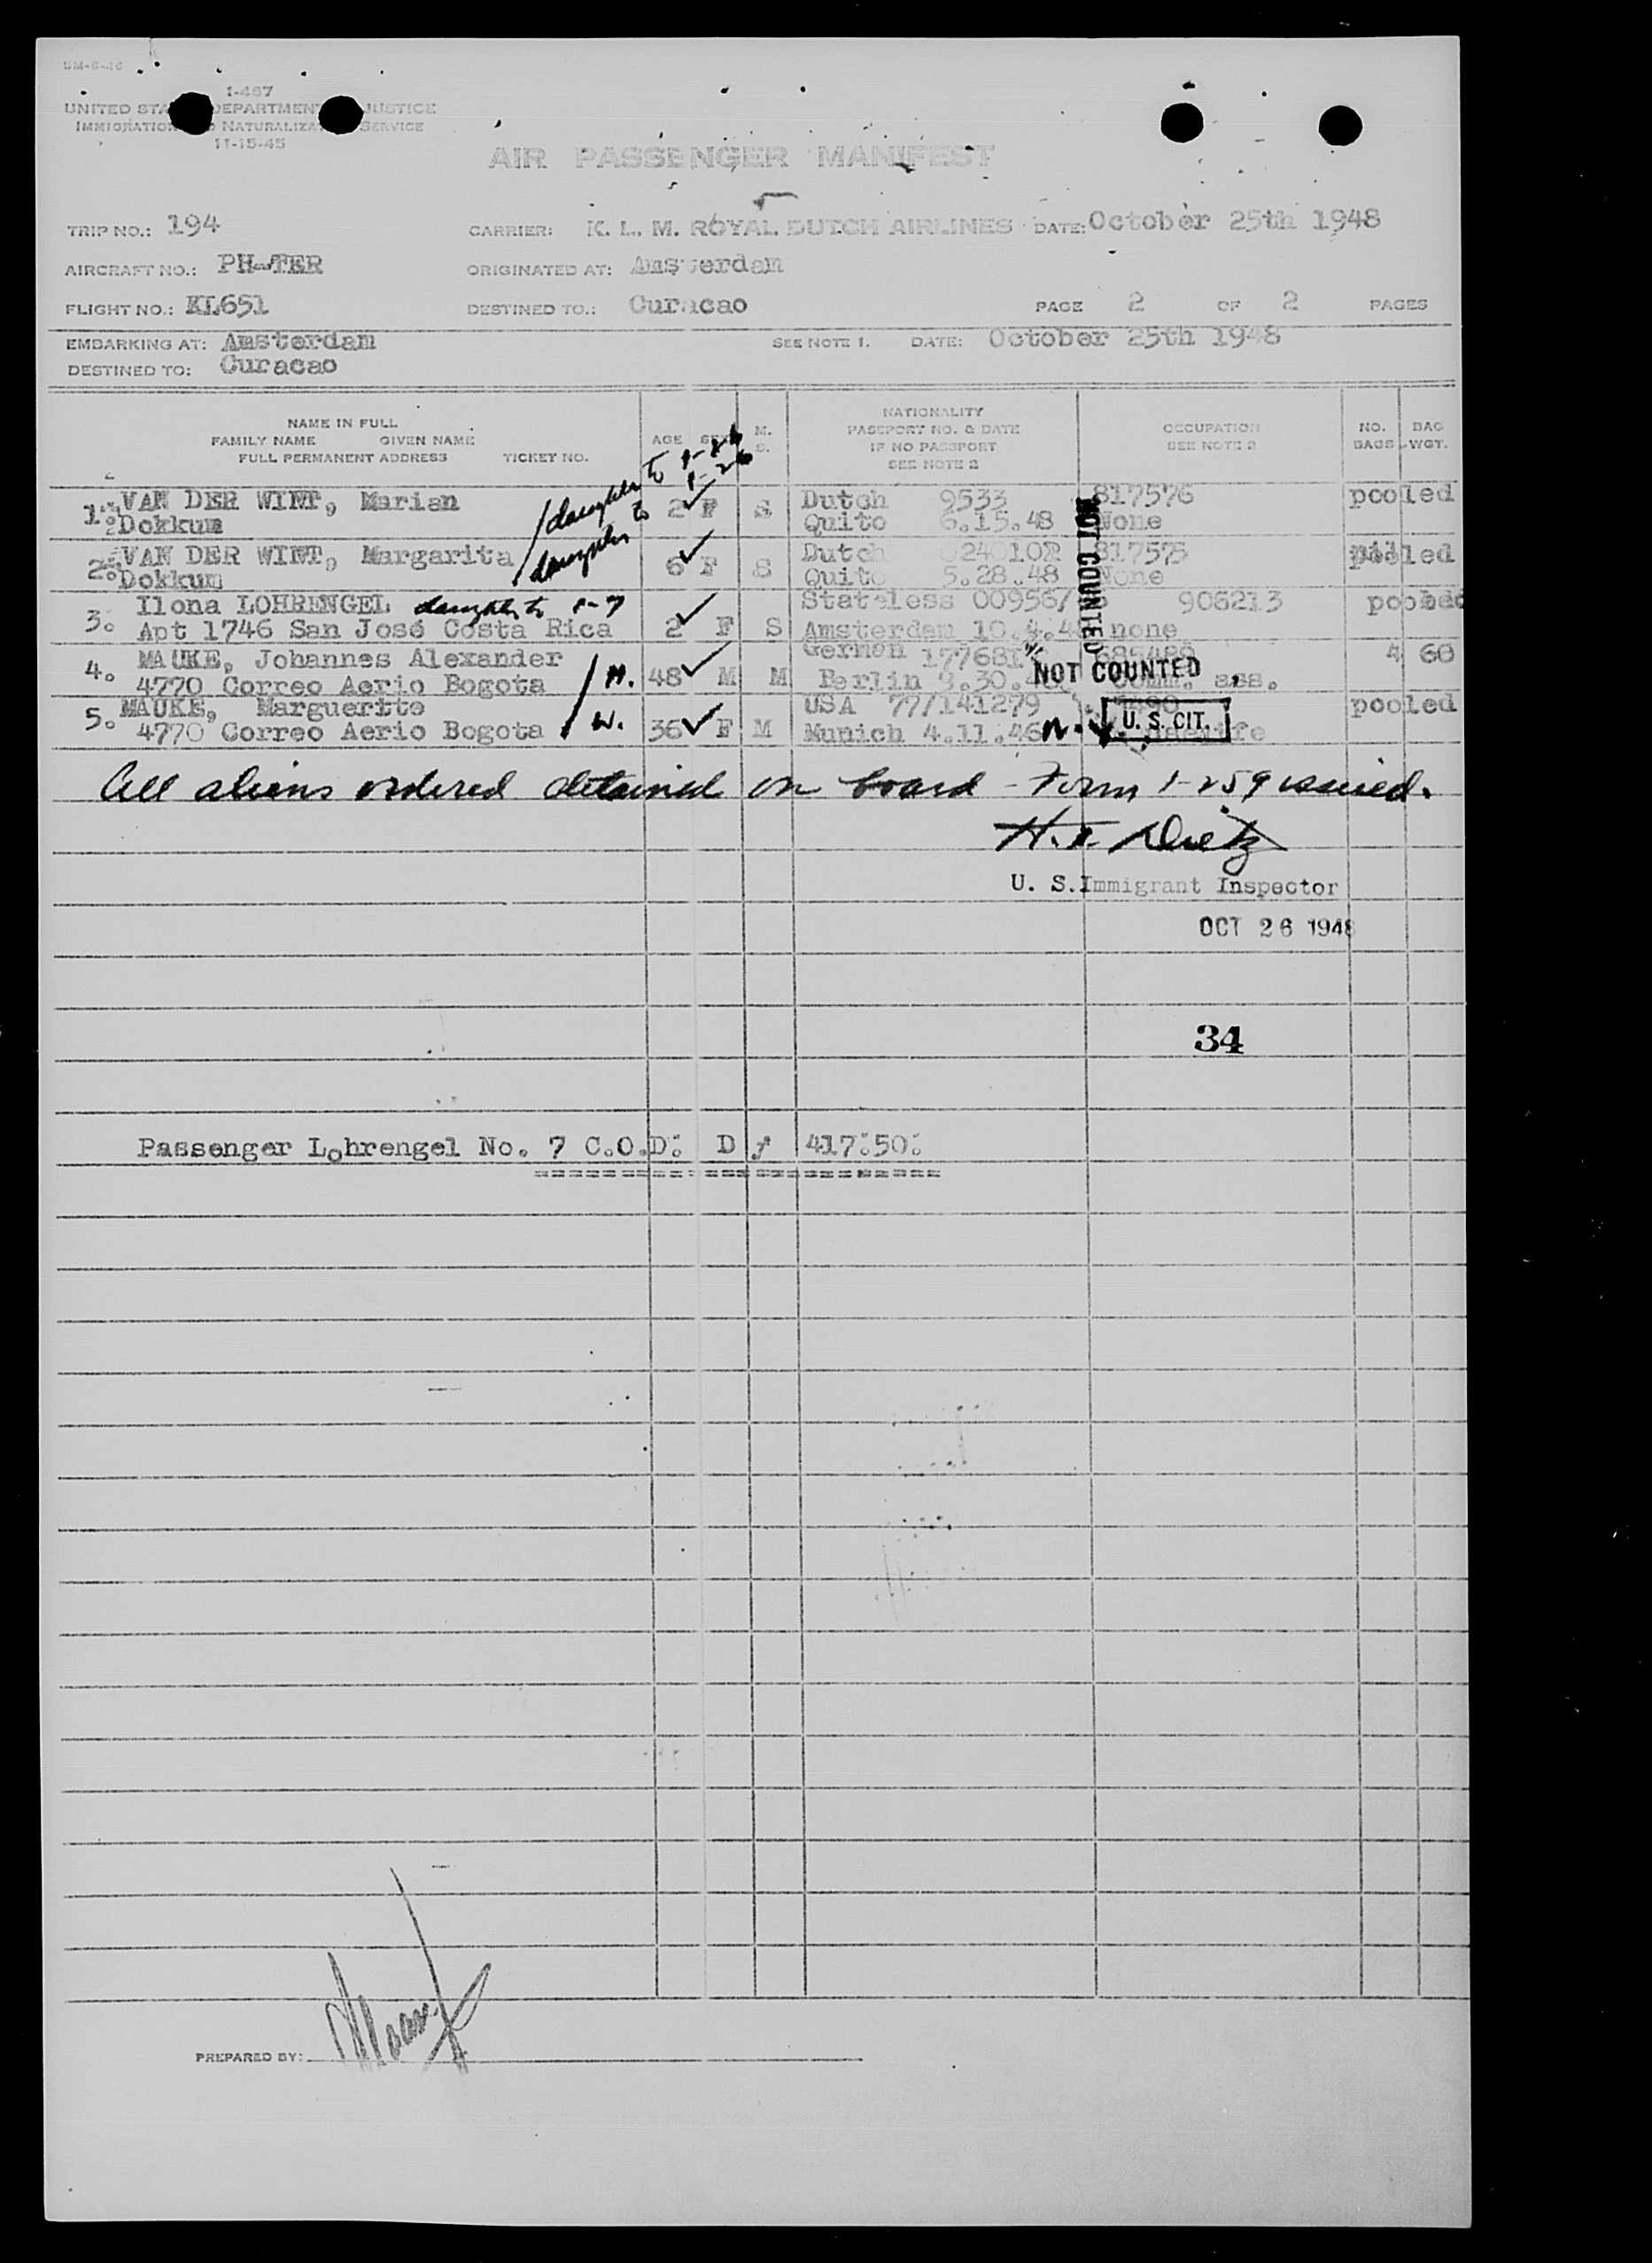 I-467
UNITED STA DEPARTMEN JUSTICE
IMMIGRATION NATURALIZA SERVICE
11-15-45
AIR PASSENGER MANIFEST
TRIP NO.: 194 CARRIER: K. L. M. ROYAL DUTCH AIRLINES DATE: October 25th 1948
AIRCRAFT NO.: PH-TER ORIGINATED AT: Amsterdam
FLIGHT NO.: KL651 DESTINED TO.: Curacao PAGE 2 OF 2 PAGES
EMBARKING AT: Amsterdam SEE NOTE 1. DATE: October 25th 1948
DESTINED TO: Curacao
NAME IN FULL
FAMILY NAME GIVEN NAME
FULL PERMANENT ADDRESS TICKET NO.
AGE SEX
M.
S.
NATIONALITY
PASSPORT NO. & DATE
IF NO PASSPORT
SEE NOTE 2
OCCUPATION
SEE NOTE 2
NO.
BAGS
BAG
WGT.
1. VAN DER WINT, Marian daughter to 2 F S Dutch 9533 817576 pooled
Dokkum Quito 6.15.48 None
2. VAN DER WINT, Margarita daughter to 6 F S Dutch 817575
Dokkum Quito 5.28.48 None
3. Ilona LOHRENGEL daughter to 1-7 Stateless 906213
Apt 1746 San José Costa Rica 2 F S Amsterdam none
4. MAUKE, Johannes Alexander H. 48 M M German 4 60
4770 Correo Aerio Bogota Berlin 9.30.
5. MAUKE, Marguerite W. 36 F M USA 77/141279 pooled
4770 Correo Aerio Bogota Munich 4.11.46
NOT COUNTED
NOT COUNTED
U. S. CIT.
All aliens ordered detained on board - Form I-259 issued.
U. S. Immigrant Inspector
OCT 26 1948
34
Passenger Lohrengel No. 7 C.O.D: D f 417:50:
PREPARED BY: